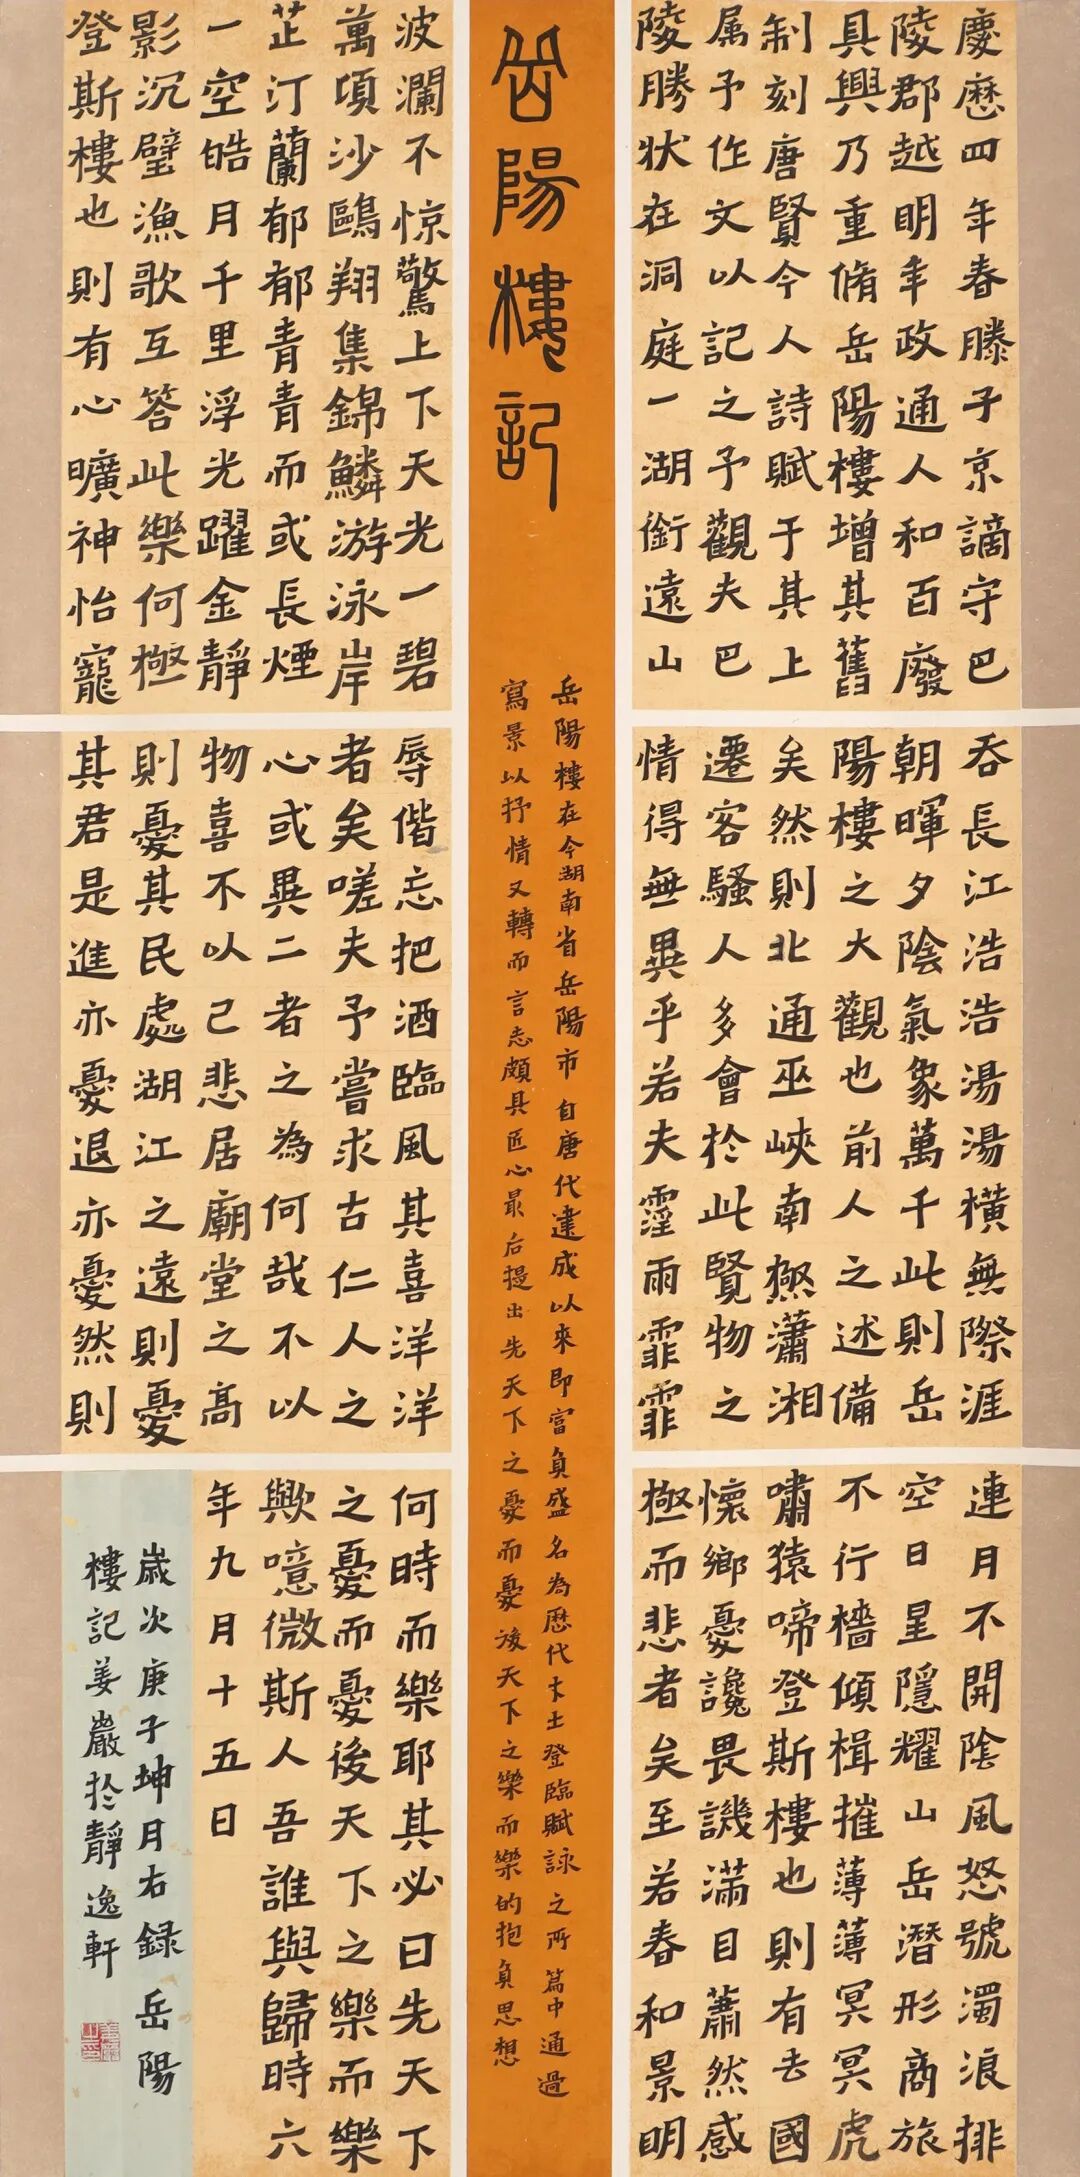 慶曆四年春滕子京謫守巴
陵郡越明年政通人和百廢
具興乃重脩岳陽樓增其舊
制刻唐賢今人詩賦于其上
属予作文以記之予觀夫巴
陵勝狀在洞庭一湖銜遠山
吞長江浩浩湯湯橫無際涯
朝暉夕陰氣象萬千此則岳
陽樓之大觀也前人之述備
矣然則北通巫峽南極瀟湘
遷客騷人多會於此賢物之
情得無異乎若夫霪雨霏霏
連月不開陰風怒號濁浪排
空日星隱耀山岳潛形商旅
不行檣傾楫摧薄薄冥冥虎
嘯猿啼登斯樓也則有去國
懷鄉憂讒畏譏滿目蕭然感
極而悲者矣至若春和景明
岳陽樓記
岳陽樓在今湖南省岳陽市自唐代建成以來即富負盛名為歷代才士登臨賦詠之所篇中通過
寫景以抒情又轉而言志頗具匠心最后提出先天下之憂而憂後天下之樂而樂的抱負思想
波瀾不惊驚上下天光一碧
萬頃沙鷗翔集錦鱗游泳岸
芷汀蘭郁郁青青而或長煙
一空皓月千里浮光躍金靜
影沉璧漁歌互答此樂何極
登斯樓也則有心曠神怡寵
辱偕忘把酒臨風其喜洋洋
者矣嗟夫予嘗求古仁人之
心或異二者之為何哉不以
物喜不以己悲居廟堂之高
則憂其民處湖江之遠則憂
其君是進亦憂退亦憂然則
何時而樂耶其必曰先天下
之憂而憂後天下之樂而樂
歟噫微斯人吾誰與歸時六
年九月十五日
歲次庚子坤月右錄岳陽
樓記姜嚴於靜逸軒